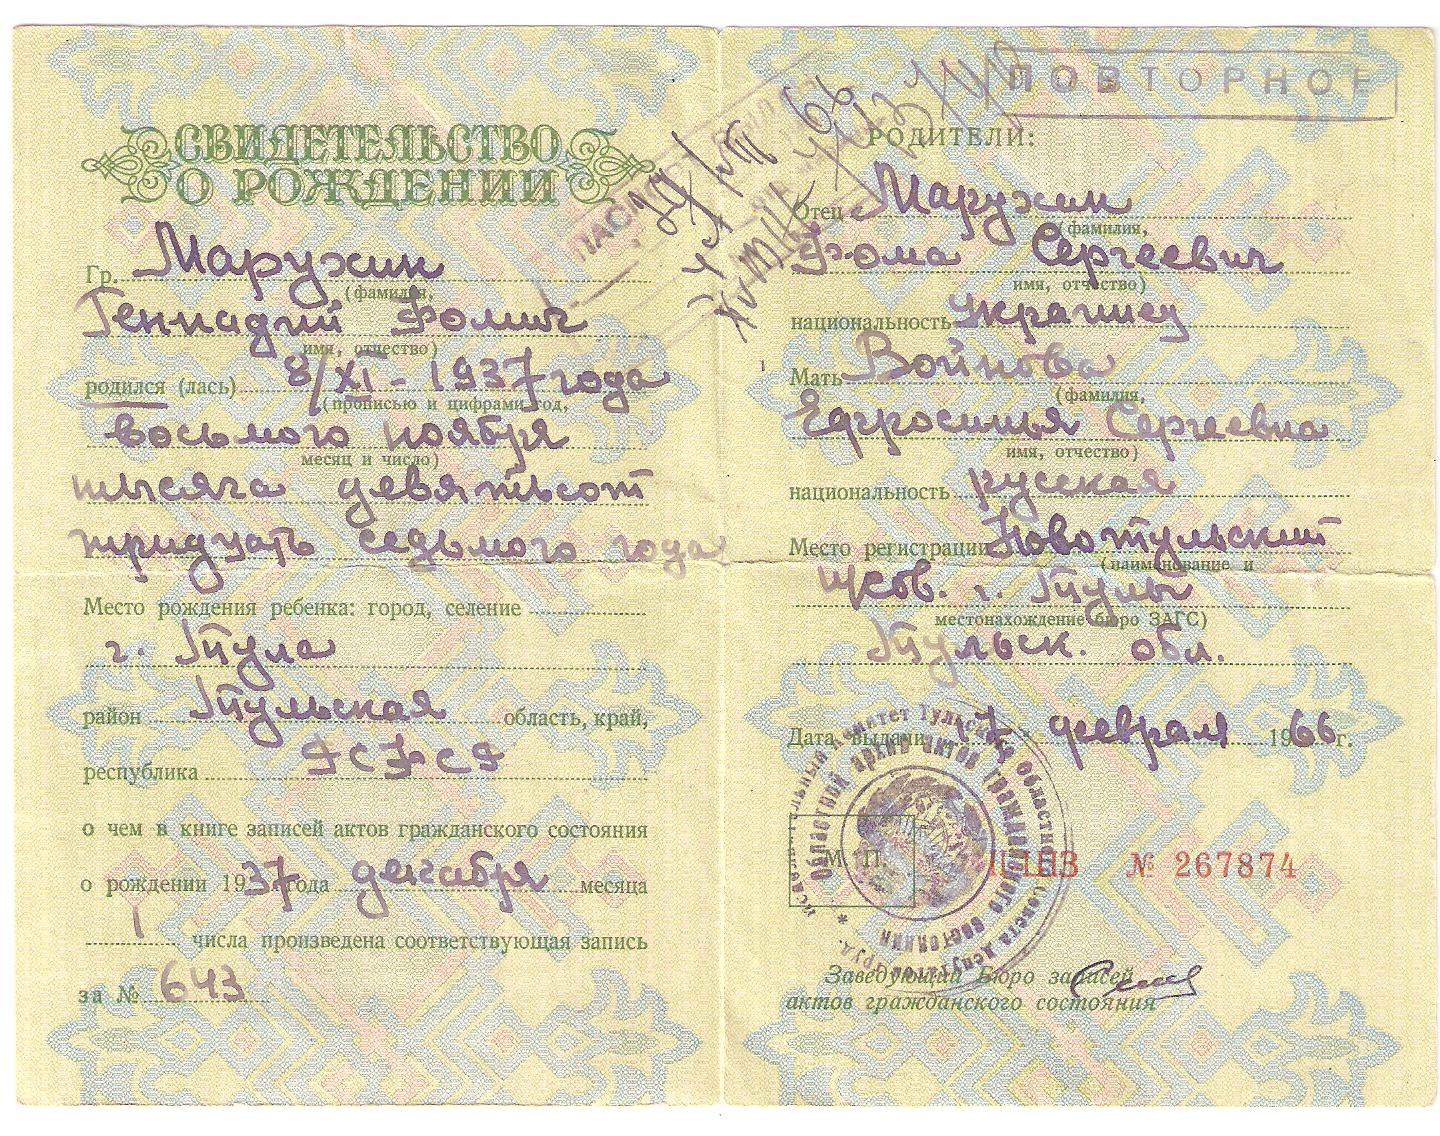 СВИДЕТЕЛЬСТВО
О РОЖДЕНИИ
Гр. Маружин
(фамилия,
Геннадий Фомич
имя, отчество)
родился (лась) 8/XI - 1937 года
(прописью и цифрами год,
восьмого ноября
месяц и число)
тысяча девятьсот
тридцать седьмого года
Место рождения ребенка: город, селение
г. Тула
район Тульская область, край,
республика РСФСР
о чем в книге записей актов гражданского состояния
о рождении 1937 года декабря месяца
1 числа произведена соответствующая запись
за № 643
ПОВТОРНОЕ
РОДИТЕЛИ:
Отец Маружин
(фамилия,
Фома Сергеевич
имя, отчество)
национальность Украинец
Мать Войнова
(фамилия,
Ефросинья Сергеевна
имя, отчество)
национальность русская
Место регистрации Новотульский
(наименование и
г. Тулы
местонахождение бюро ЗАГС)
Тульск. обл.
Дата выдачи 7 февраля 1966 г.
М. П.
№ 267874
Областной архив актов гражданского состояния
Заведующий Бюро записей
актов гражданского состояния